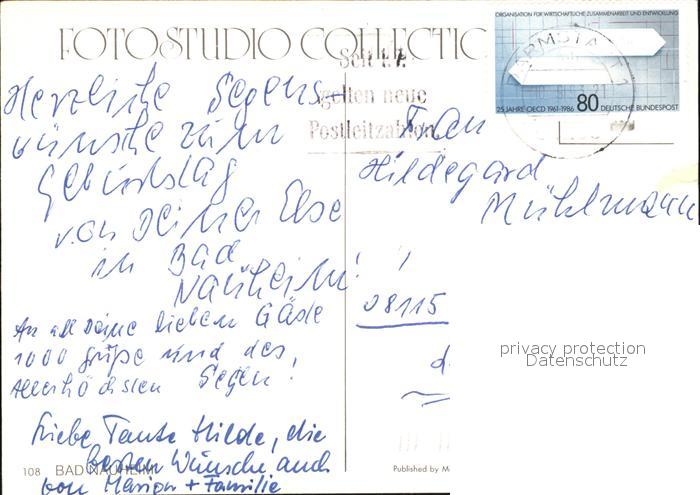 FOTOSTUDIO COLLECTIO
ORGANISATION FÜR WIRTSCHAFTLICHE ZUSAMMENARBEIT UND ENTWICKLUNG
25 JAHRE OECD 1961-1986 80 DEUTSCHE BUNDESPOST
Seit 1.7.
gelten neue
Postleitzahlen
Herzliche Segens-
wünsche zum
Geburtstag
von Deiner Else
in Bad
Nauheim!
An all Deine lieben Gäste
1000 Grüße und des
Allerhöchsten Segen!
Liebe Tante Hilde, die
besten Wünsche auch
von Marion + Familie
Frau
Hildegard
Mühlmann
08115
privacy protection
Datenschutz
108 BAD NAUHEIM
Published by